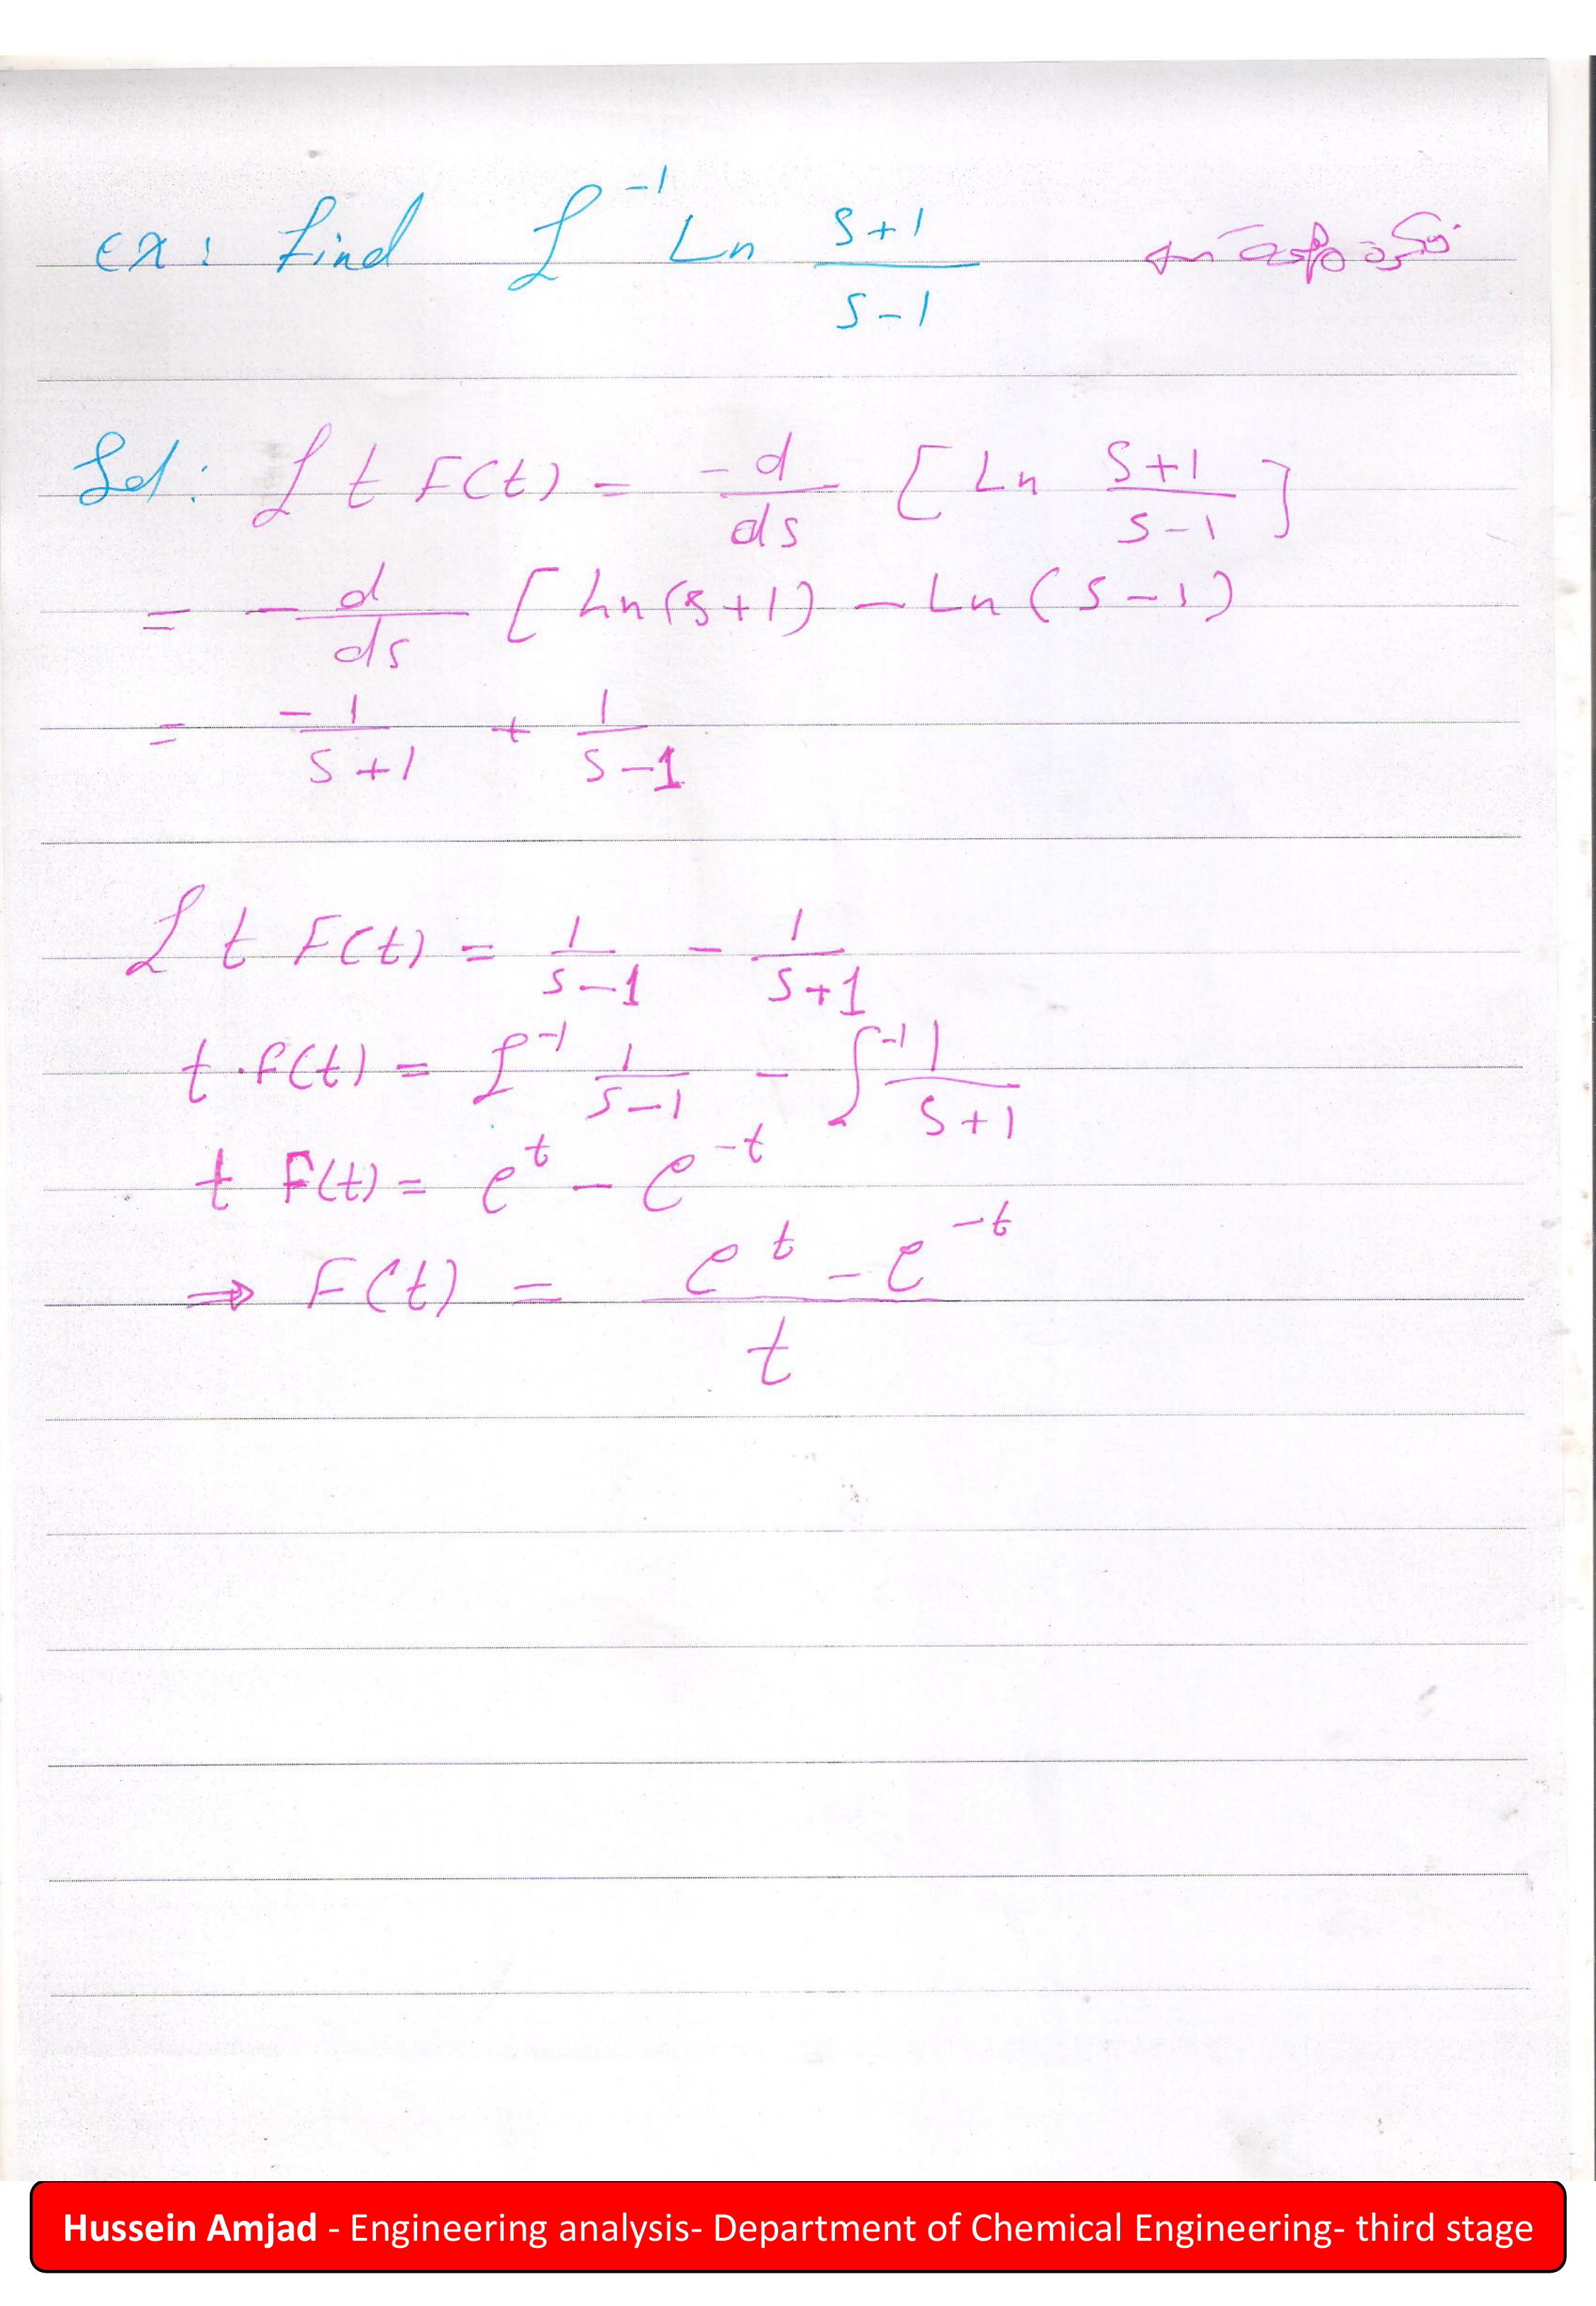 ex: find ℒ⁻¹ Ln (s+1)/(s-1)
Sol: ℒ t F(t) = -d/ds [Ln (s+1)/(s-1)]
= -d/ds [Ln(s+1) - Ln(s-1)
= -1/(s+1) + 1/(s-1)
ℒ t F(t) = 1/(s-1) - 1/(s+1)
t . f(t) = ℒ⁻¹ 1/(s-1) - ∫⁻¹ 1/(s+1)
t F(t) = e^t - e^-t
⇒ F(t) = (e^t - e^-t)/t
Hussein Amjad - Engineering analysis- Department of Chemical Engineering- third stage